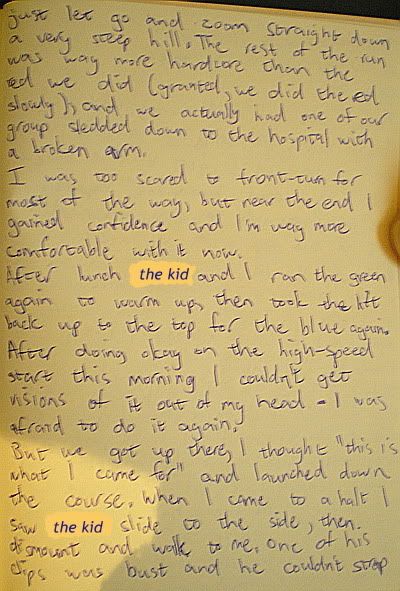 just let go and zoom straight down
a very steep hill. The rest of the run
was way more hardcore than the
red we did (granted, we did the red
slowly), and we actually had one of our
group sledded down to the hospital with
a broken arm.
I was too scared to front-turn for
most of the way, but near the end I
gained confidence and I'm way more
comfortable with it now.
After lunch the kid and I ran the green
again to warm up, then took the lift
back up to the top for the blue again.
After doing okay on the high-speed
start this morning I couldn't get
visions of it out of my head - I was
afraid to do it again.
But we got up there, I thought "this is
what I came for" and launched down
the course. When I came to a halt I
saw the kid slide to the side, then
dismount and walk to me. One of his
clips was bust and he couldn't strap